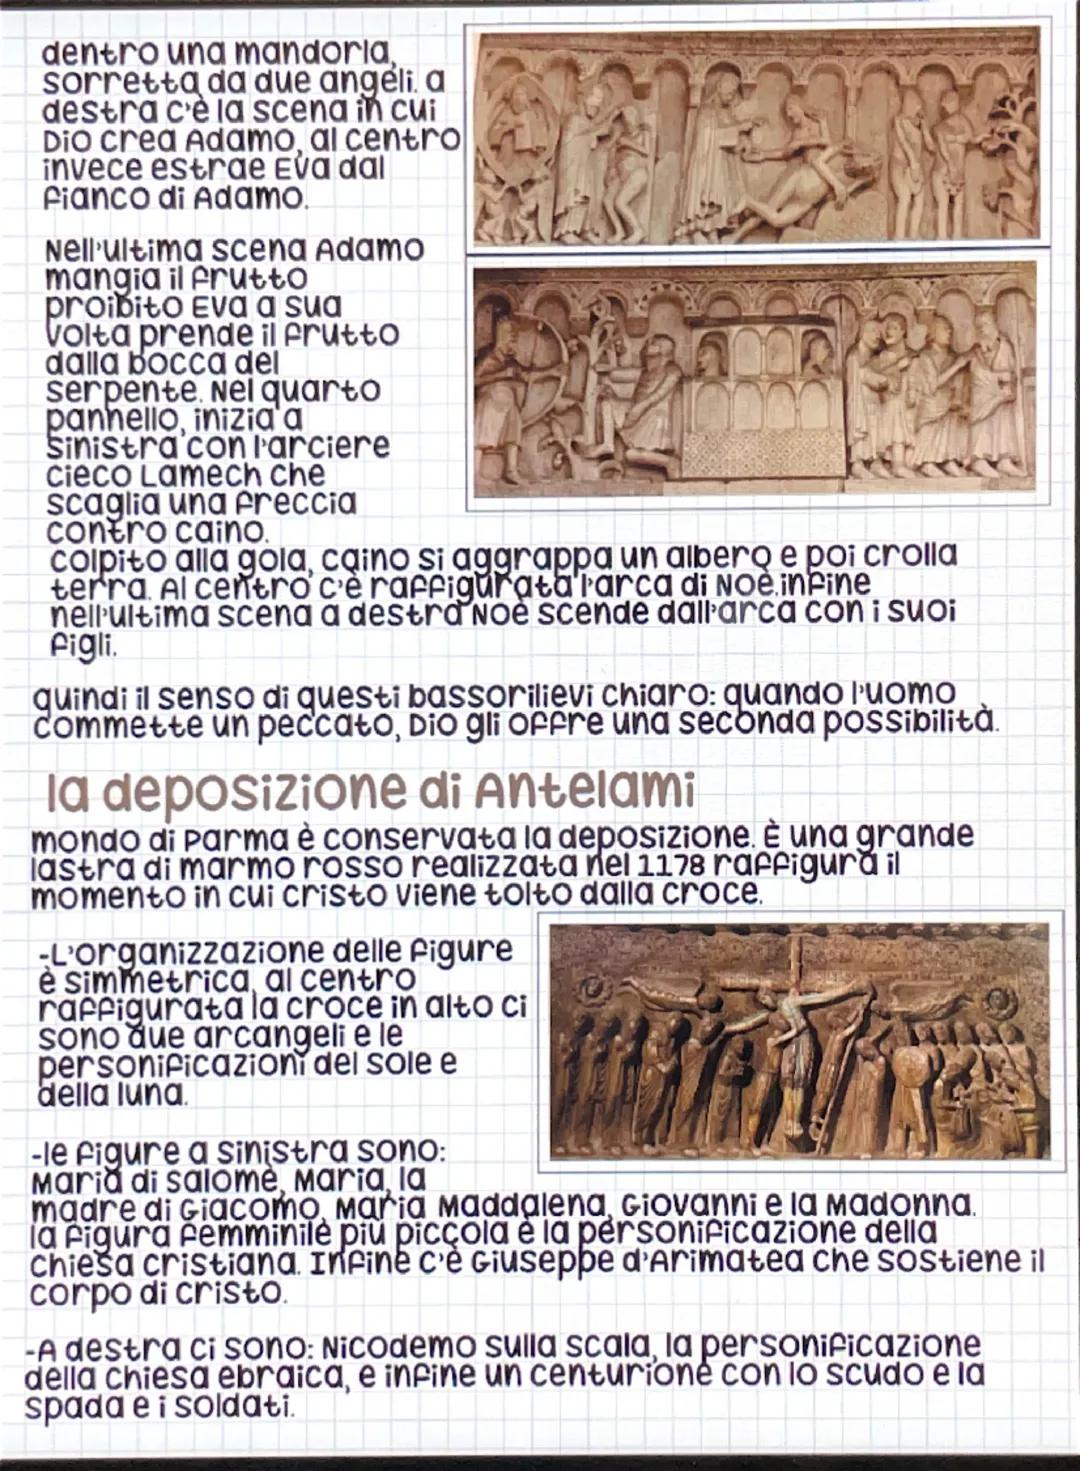 dentro una mandorla,
sorretta da due angeli. a
destra c'è la scena in cui
Dio crea Adamo, al centro
invece estrae Eva dal
fianco di Adamo.
Nell'ultima scena Adamo
mangia il frutto
proibito Eva a sua
volta prende il frutto
dalla bocca del
serpente. Nel quarto
pannello, inizia a
sinistra con l'arciere
cieco Lamech che
scaglia una freccia
contro caino.
colpito alla gola, caino si aggrappa un albero e poi crolla
terra. Al centro c'è raffigurata l'arca di Noè.infine
nell'ultima scena a destra Noè scende dall'arca con i suoi
figli.
quindi il senso di questi bassorilievi chiaro: quando l'uomo
commette un peccato, Dio gli offre una seconda possibilità.
la deposizione di Antelami
mondo di Parma è conservata la deposizione. È una grande
lastra di marmo rosso realizzata nel 1178 raffigura il
momento in cui cristo viene tolto dalla croce.
-L'organizzazione delle figure
è simmetrica, al centro
raffigurata la croce in alto ci
sono due arcangeli e le
personificazioni del sole e
della luna.
-le figure a sinistra sono:
Maria di salomè, Maria, la
madre di Giacomo, Maria Maddalena, Giovanni e la Madonna.
la figura femminile più piccola è la personificazione della
chiesa cristiana. Infine c'è Giuseppe d'Arimatea che sostiene il
corpo di cristo.
-A destra ci sono: Nicodemo sulla scala, la personificazione
della chiesa ebraica, e infine un centurione con lo scudo e la
spada e i soldati.